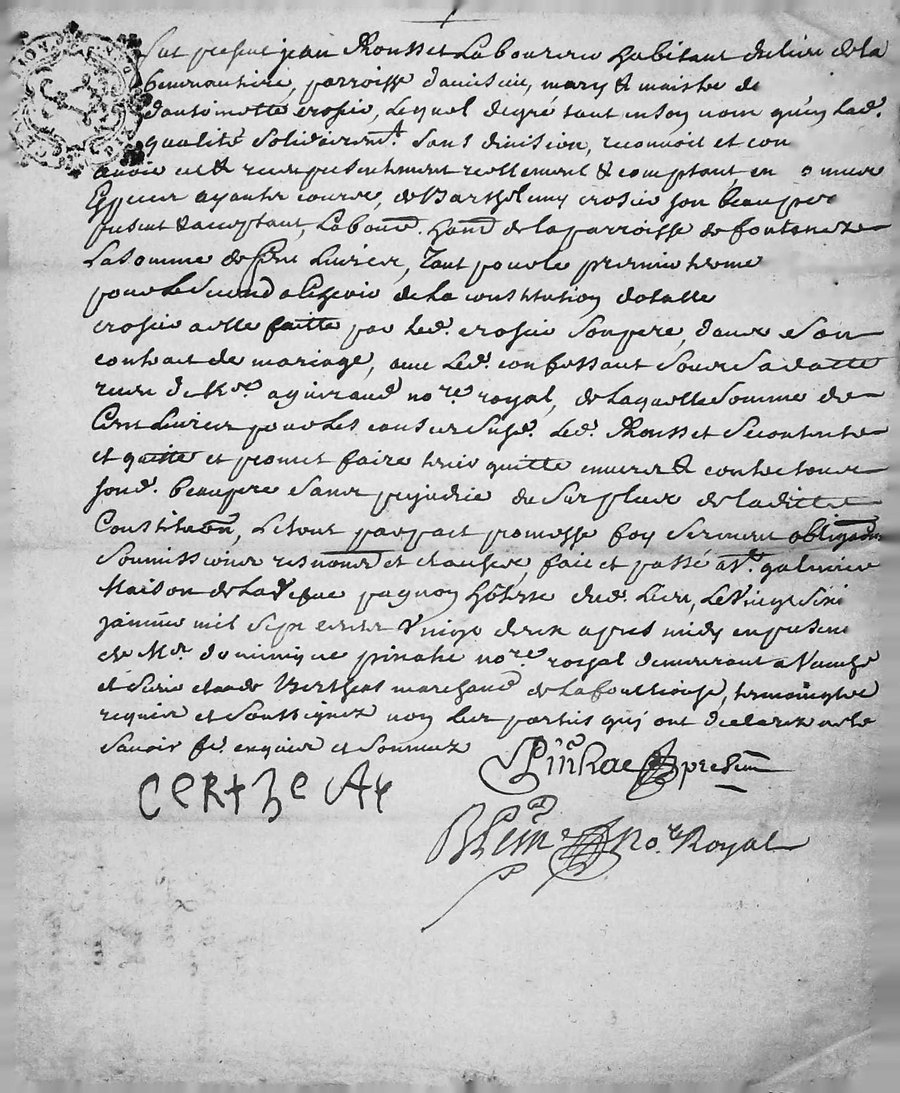 fut present jean Rousset Laboureur habitant du lieu de la
parroisse mary & maistre de
d'antoinette crosier, Lequel de gré tant en son nom qu'en lad.
qualité solidairemt. sans division, reconnoit et con
avoir eu & receu presentement reellement & comptant, en
Especes ayantes cours, de Barthelemy crosier son beaupere
present & acceptant, Labour. hant. de la parroisse de fontanez
La somme de Cent Livres, Tant pour le premier terme
pour Le Second de La constitution de
crosier a elle faitte par led. crosier son pere, dans son
contrat de mariage, avec Led. confessant sous sa datte
receu de Me. aguiraud nore. royal, de Laquelle somme de
Cent Livres pour Les causes susd. Led. Rousset se contente
et quitte et promet faire tenir quitte envers & contre tous
sond. beaupere sans prejudice du surplus de laditte
Constituon, Le tout par pact promesse foy serment obligaon
soumissions renons et clauses, fait et passé a St. galmier
Maison de La Veufve pagnon hôtesse dud. Lieu, Le Vingt six
janvier mil sept cents Vingt deux apres midy en presence
de Me. dominique pinhac nore. royal demeurant a
et sieur claude Bertheas marchand de La temoins
requis et soussignez non Les partis quy ont declarez ne le
savoir fe. enquis et sommez
Pinhac present
CeRtheAs
nore. Royal